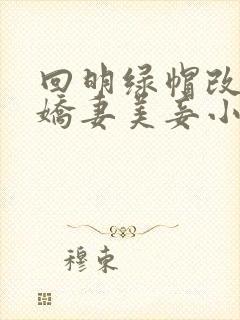 回明绿帽改
娇妻美妾小
穆束